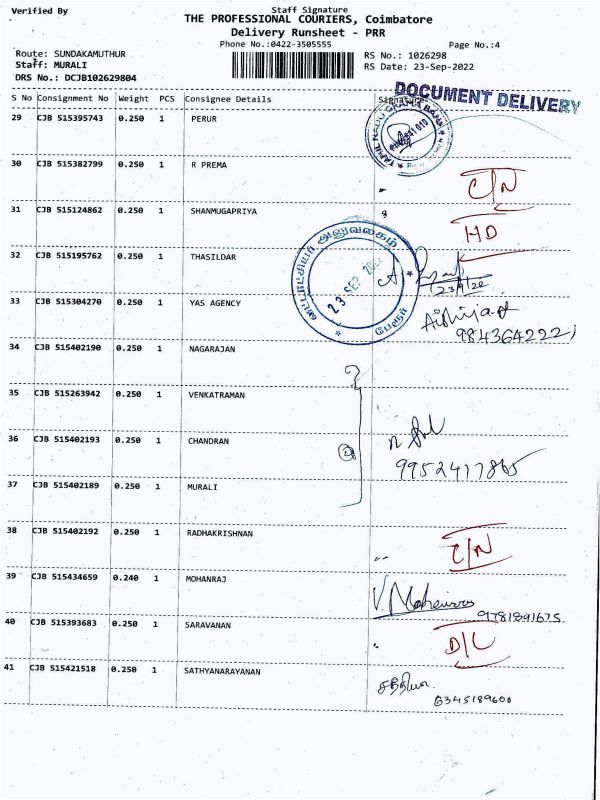 Verified By
Staff Signature
THE PROFESSIONAL COURIERS, Coimbatore
Delivery Runsheet - PRR
Phone No.:0422-3505555
Page No.:4
Route: SUNDAKAMUTHUR
RS No.: 1026298
Staff: MURALI
RS Date: 23-Sep-2022
DRS No.: DCJB102629804
DOCUMENT DELIVERY
S No Consignment No Weight PCS Consignee Details Signature
29 CJB 515395743 0.250 1 PERUR
TAMIL NADU GRAMA BANK
30 CJB 515382799 0.250 1 R PREMA
C/N
31 CJB 515124862 0.250 1 SHANMUGAPRIYA
HD
32 CJB 515195762 0.250 1 THASILDAR
வட்டாட்சியர் அலுவலகம்
23 SEP 2022
பேரூர்
23/9/22
33 CJB 515304270 0.250 1 YAS AGENCY
9843642221
34 CJB 515402190 0.250 1 NAGARAJAN
35 CJB 515263942 0.250 1 VENKATRAMAN
36 CJB 515402193 0.250 1 CHANDRAN
9952417865
37 CJB 515402189 0.250 1 MURALI
38 CJB 515402192 0.250 1 RADHAKRISHNAN
C/N
39 CJB 515434659 0.240 1 MOHANRAJ
9781891675
40 CJB 515393683 0.250 1 SARAVANAN
D/L
41 CJB 515421518 0.250 1 SATHYANARAYANAN
6345189600